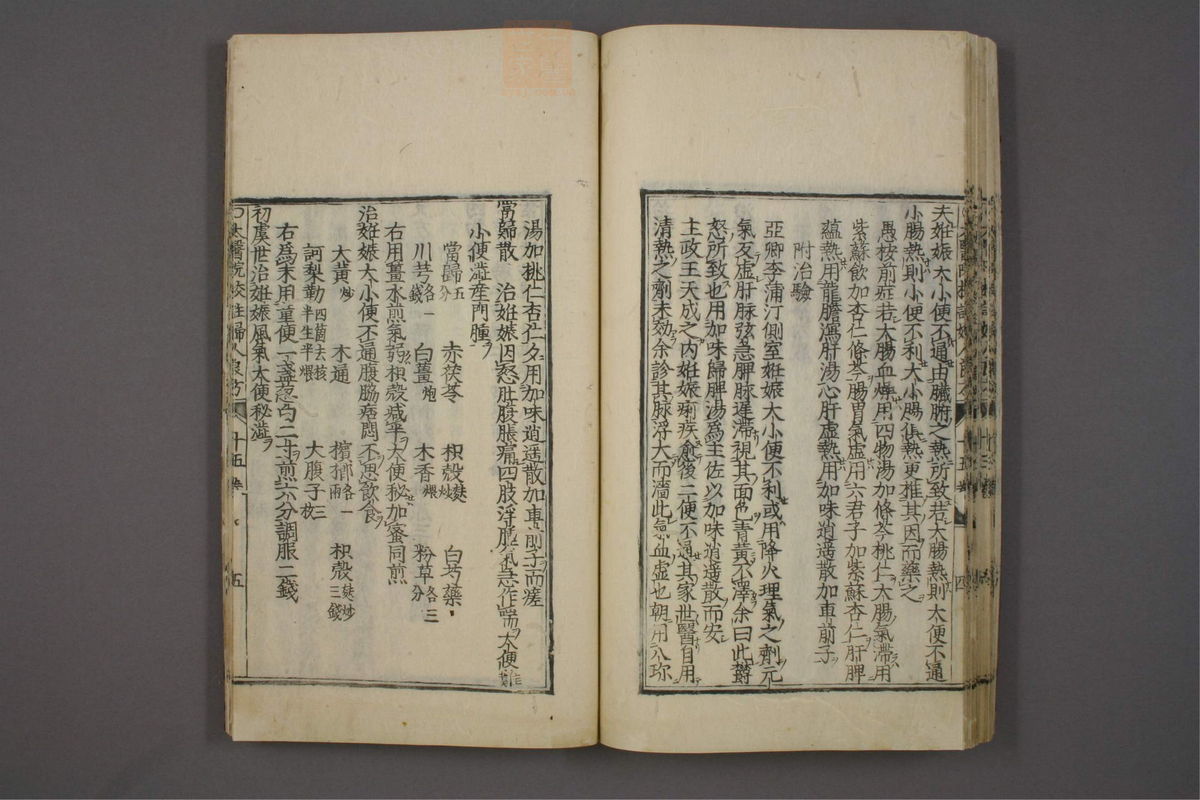 夫姙娠大小便不通由臟腑之熱所致若大腸熱則大便不通
小腸熱則小便不利大小腸俱熱更推其因而藥之
愚按前症若大腸血燥用四物湯加條芩桃仁大腸氣滯用
紫蘇飲加杏仁條芩腸胃氣虛用六君子加紫蘇杏仁肝脾
蘊熱用龍膽瀉肝湯心肝虛熱用加味逍遙散加車前子
附治驗
亞卿李蒲汀側室姙娠大小便不利或用降火理氣之劑元
氣反虛肝脉弦急脾脉遲滯視其面色青黃不澤余曰此欝
怒所致也用加味歸脾湯爲主佐以加味逍遙散而安
主政王天成之内姙娠痢疾愈後二便不通其家世醫自用
清熱之劑未効余診其脉浮大而濇此氣血虛也朝用八珎
湯加桃仁杏仁夕用加味逍遙散加車前子而瘥
當歸散 治姙娠因怒肚腹脹痛四肢浮腫氣急作喘大便難
小便澁産門腫
當歸五分 赤茯苓 枳殼麩炒 白芍藥
川芎各一錢 白薑炮 木香煨 粉草各三分
右用薑水煎氣弱枳殼减半大便秘加蜜同煎
治姙娠大小便不通腹脇痞悶不思飲食
大黃炒 木通 檳榔各一兩 枳殼麩炒三錢
訶梨勒四箇去核半生半煨 大腹子三枚
右爲末用童便一盞葱白二寸煎六分調服二錢
初虞世治姙娠風氣大便秘澁
太醫院校註婦人良方 十五卷 五